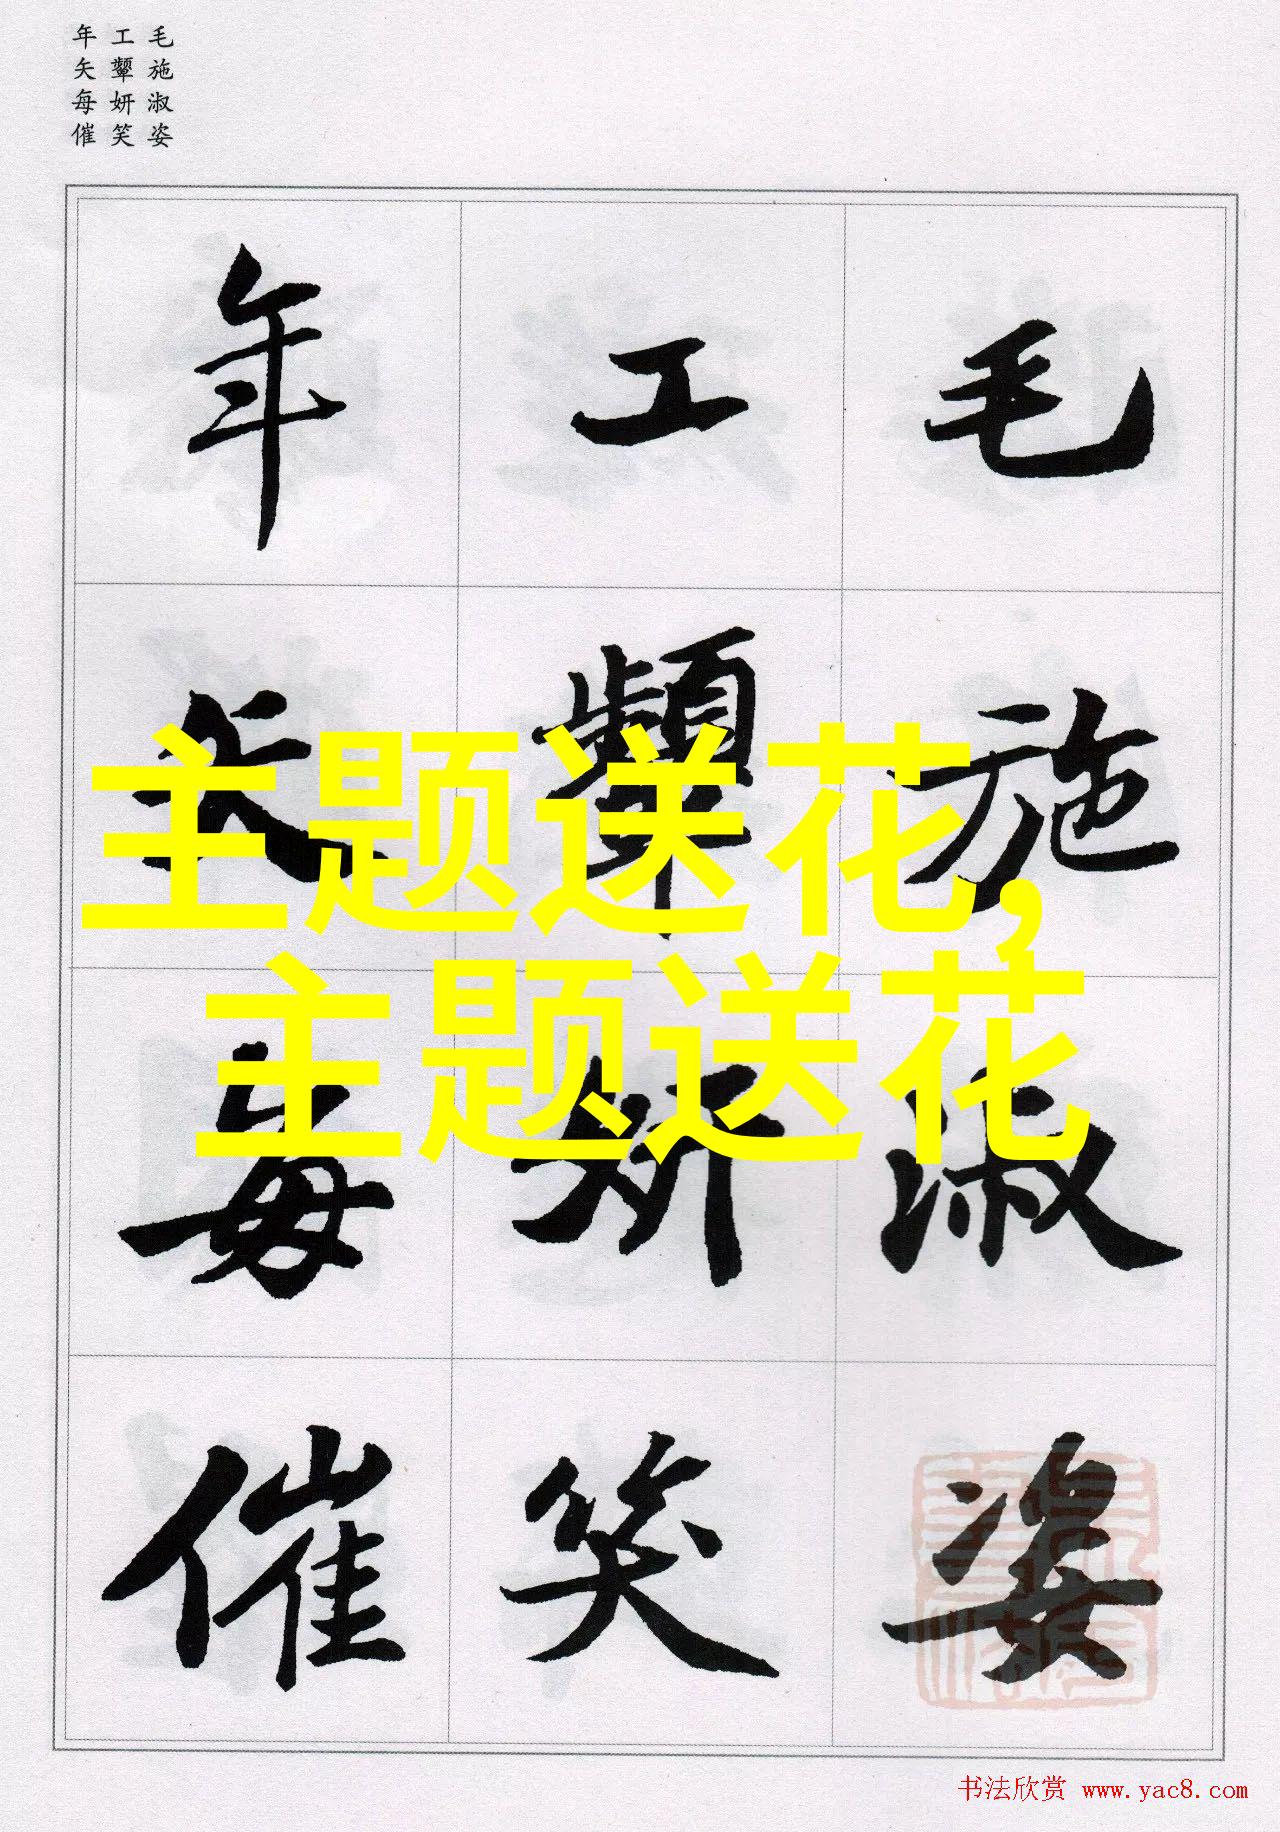 毛施淑姿
工颦妍笑
年矢每催
毛施淑姿
工颦妍笑
年矢每催
主题送花,
主题送花
书法欣赏 www.yac8.com